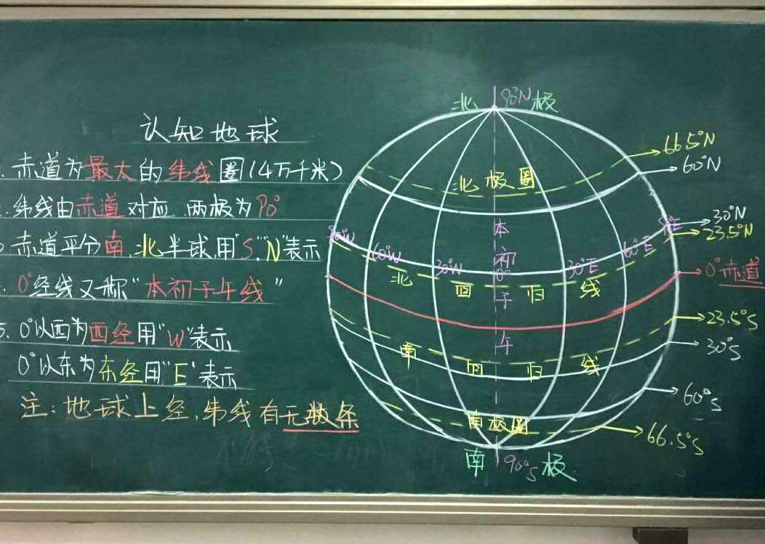 认知地球
.赤道为最大的纬线圈(4万千米)
.纬线由赤道对应,两极为90°
赤道平分南,北半球,用"S","N"表示
.0°经线又称"本初子午线"
5.0°以西为西经用"W"表示
0°以东为东经用"E"表示
注:地球上经,纬线有无数条
北 90°N 极
66.5°N
60°N
北极圈
30°N
23.5°N
90°W 60°W 30°W 0° 30°E 60°E
北回归线
本初子午
0°赤道
23.5°S
30°S
南回归线
60°S
南极圈
66.5°S
南 90°S 极